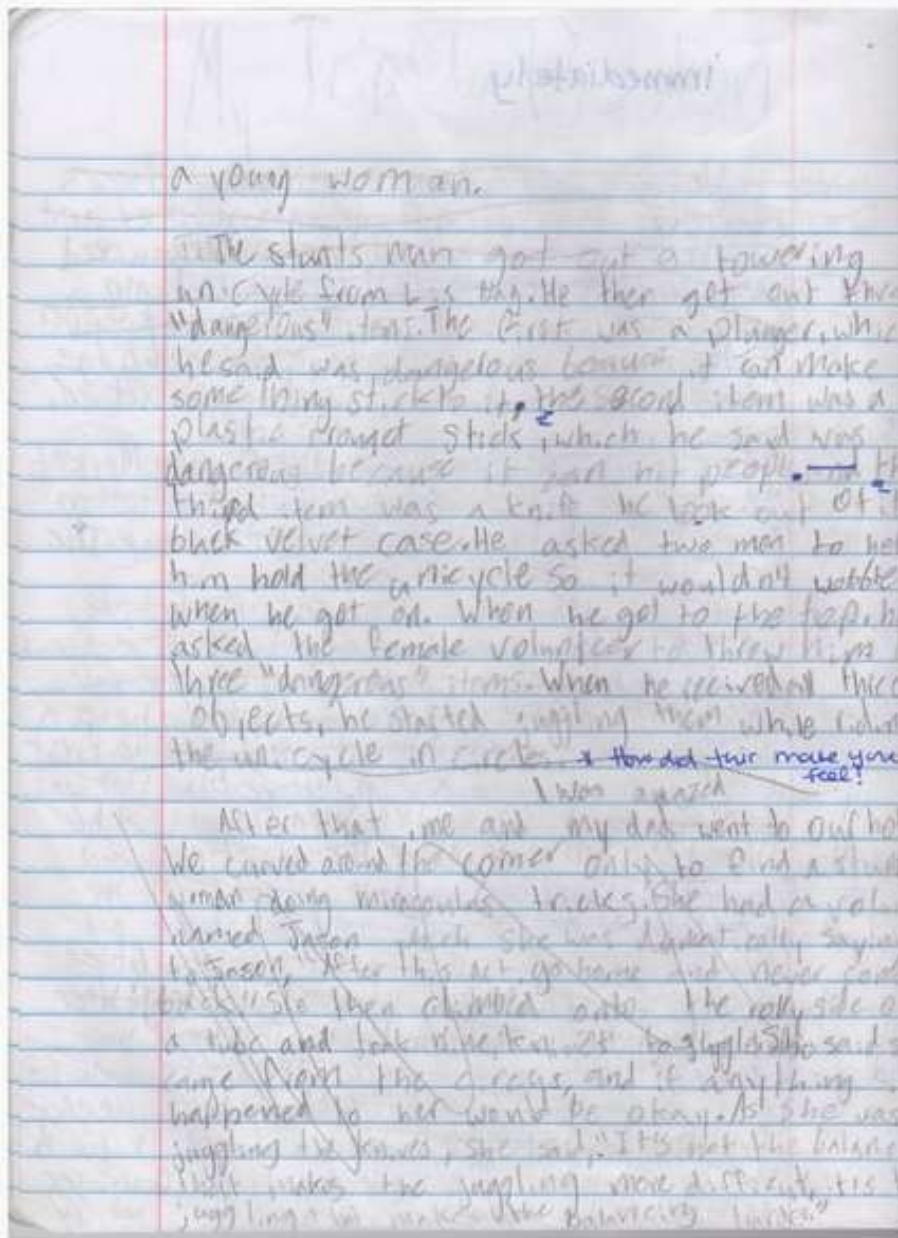 immediately
a young woman.
The stunts man got out a towering
unicycle from his bag. He then got out thre
"dangerous" items. The first was a plunger, whic
he said was dangerous because it can make
something stick to it. the second item was a
plastic stick, which he said was
dangerous because it can hit people. th
third item was a knife he took out of
black velvet case. He asked two men to hel
him hold the unicycle so it wouldn't wobble
when he got on. When he got to the top, h
asked the female volunteer to threw him
three "dangerous" items. When he recived all three
objects, he started juggling them while
the unicycle in circle * How did this make you
feel?
I was amazed
After that, me and my dad went to our ho
We carved around the corner only to find a
woman doing tricks. She had a vol
named Jason she was saying
to Jason, "After this act go home and never
back" she then climbed onto the side o
a tube and took to She said s
came from the and if anything
happened to her would be okay. As she was
juggling the knives, she said, "It's not the balanc
that makes the juggling more difficult, it's
juggling makes the balancing harder."